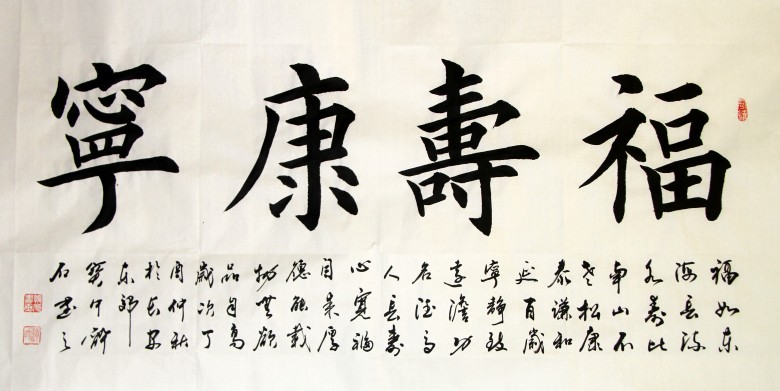 福壽康寧
福如东
海長流
水壽比
南山不
老松康
泰謙和
延百歲
寧靜致
遠澹功
名德高
人長壽
心寬福
自来厚
德能載
物無欲
品自高
歲次丁
酉仲秋
於長安
东郊
石墨之